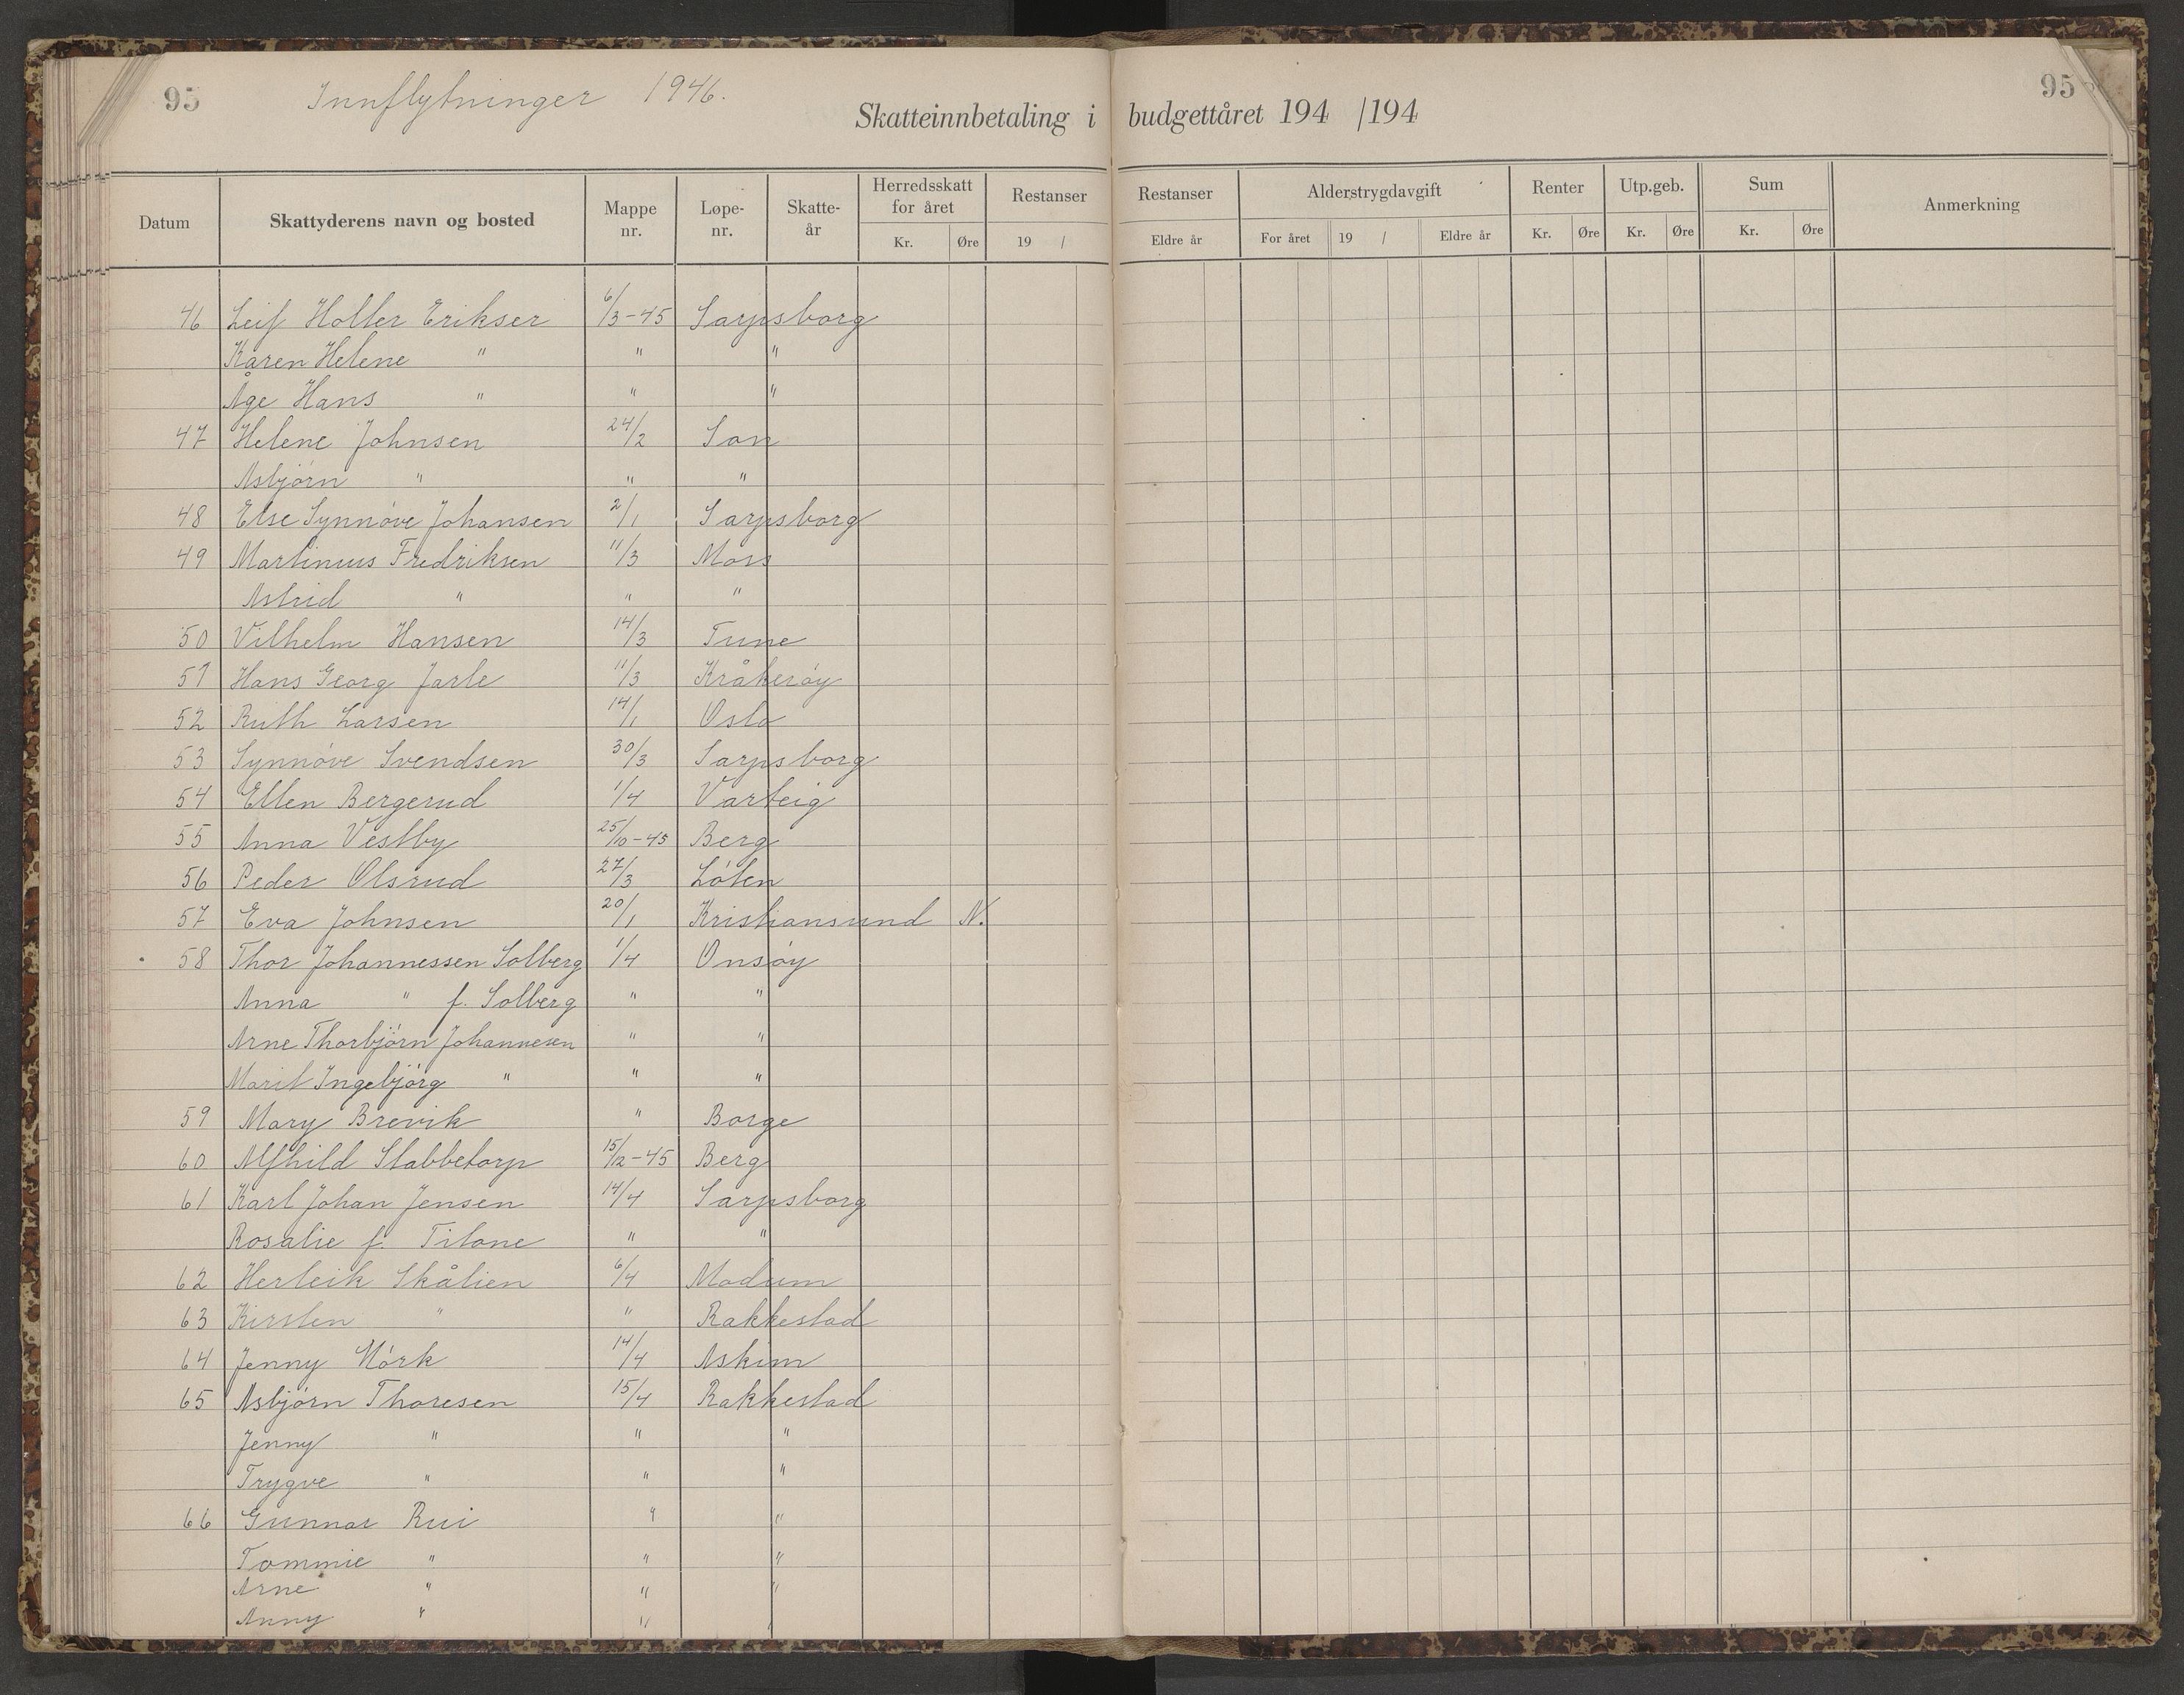 95 Innflytninger 1946. 95
Skatteinnbetaling i budgettåret 194 /194
Datum Skattyderens navn og bosted Mappe nr. Løpe-nr. Skatte-år Herredsskatt for året Kr. Øre Restanser 19 / Restanser Eldre år Alderstrygdavgift For året 19 / Eldre år Renter Kr. Øre Utp.geb. Kr. Øre Sum Kr. Øre Anmerkning
46 Leif Holler Erikser 6/3-45 Sarpsborg
Karen Helene " " "
Åge Hans " " "
47 Helene Johnsen 24/2 Son
Asbjørn " " "
48 Else Synnøve Johansen 2/1 Sarpsborg
49 Martinius Fredriksen 11/3 Moss
Astrid " " "
50 Vilhelm Hansen 14/3 Tune
51 Hans Georg Jarle 11/3 Kråkerøy
52 Ruth Larsen 14/1 Oslo
53 Synnøve Svendsen 30/3 Sarpsborg
54 Ellen Bergerud 1/4 Varteig
55 Anna Vestby 25/10-45 Berg
56 Peder Olsrud 27/3 Løten
57 Eva Johnsen 20/1 Kristiansund N.
58 Thor Johannessen Solberg 1/4 Onsøy
Anna " f. Solberg " "
Arne Thorbjørn Johannesen " "
Marit Ingebjørg " " "
59 Mary Brevik " Borge
60 Alfhild Stabbetorp 15/12-45 Berg
61 Karl Johan Jensen 14/4 Sarpsborg
Rosalie f. Titone " "
62 Herleik Skålien 6/4 Modum
63 Kirsten " " Rakkestad
64 Jenny Mørk 14/4 Askim
65 Asbjørn Thoresen 15/4 Rakkestad
Jenny " " "
Trygve " " "
66 Gunnar Rui " "
Tommie " " "
Arne " " "
Anny " "